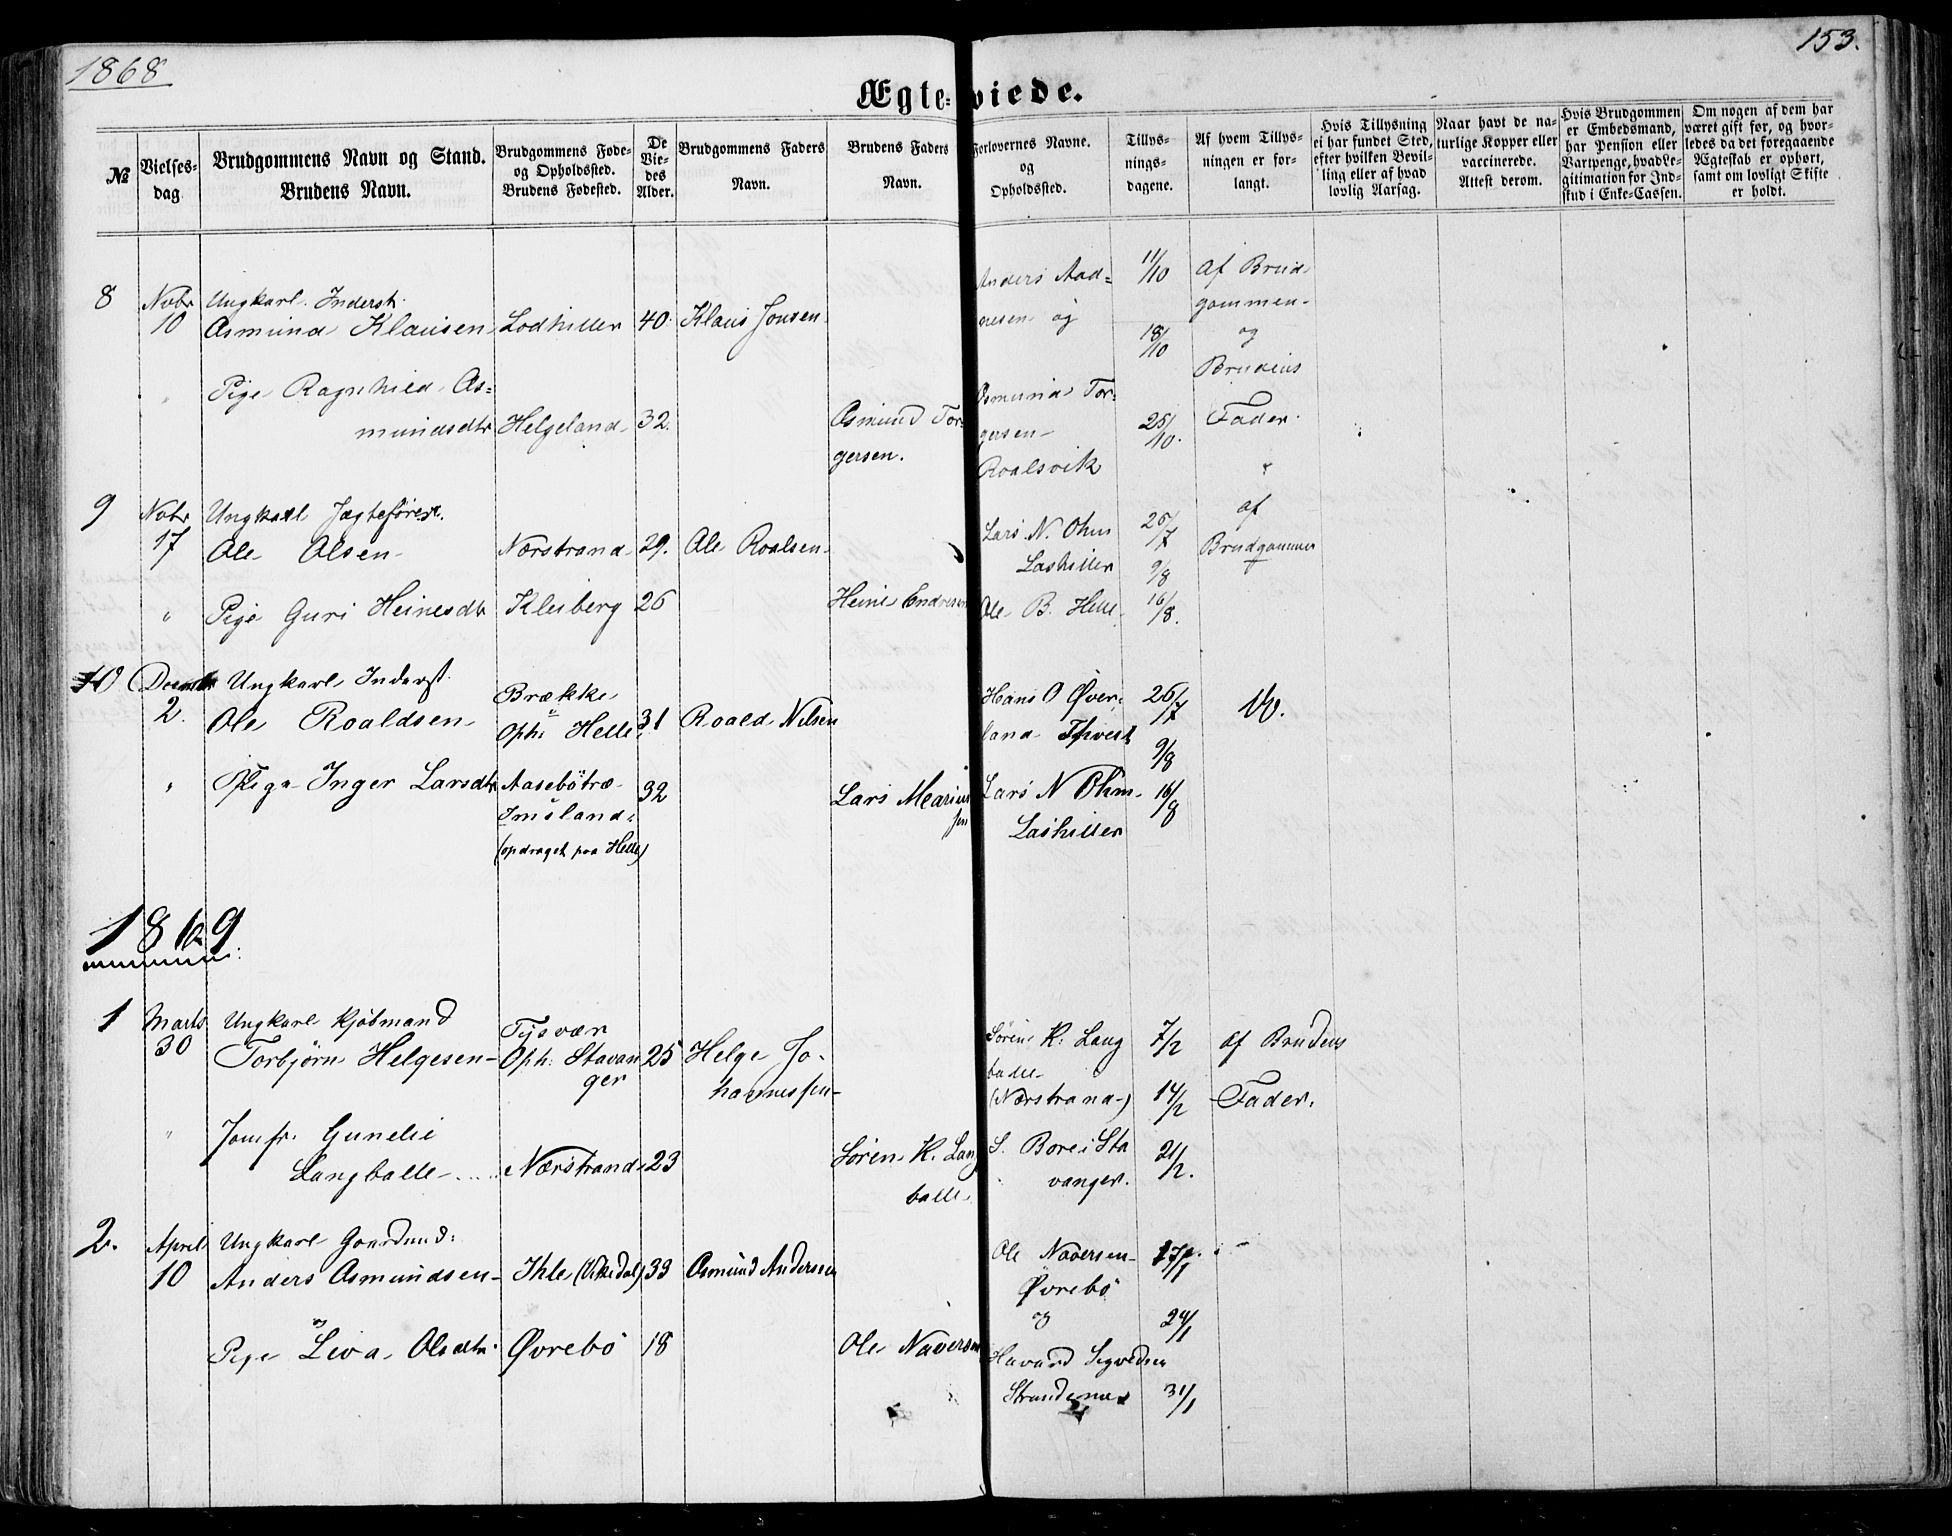 1868
153.
Ægteviede.
№
Vielses-
dag.
Brudgommens Navn og Stand.
Brudens Navn.
Brudgommens Føde-
og Opholdssted.
Brudens Fødested.
De
Vie-
des
Alder.
Brudgommens Faders
Navn.
Brudens Faders
Navn.
Forlovernes Navne.
og
Opholdssted.
Tillys-
nings-
dagene.
Af hvem Tillys-
ningen er for-
langt.
Hvis Tillysning
ei har fundet Sted,
efter hvilken Bevil-
ling eller af hvad
lovlig Aarsag.
Naar havt de na-
turlige Kopper eller
vaccinerede.
Attest derom.
Hvis Brudgommen
er Embedsmand,
har Pension eller
Vartpenge, hvad Le-
gitimation for Ind-
skud i Enke-Cassen.
Om nogen af dem har
været gift før, og hvor-
ledes da det foregaaende
Ægteskab er ophørt,
samt om lovligt Skifte
er holdt.
8
Nobr
10
Ungkarl. Inderst.
Osmund Klausen
Lodhiller
40
Klaus Jonsen
Anders Aad-
nesen og
11/10
18/10
Af Brud
gommen
og
Brudens
Pige Ragnhild Os=
mundsdtr
Helgeland
32.
Osmund Tor-
gersen.
Osmund Tor-
gersen
Roalsvik
25/10.
Fader.
9
Nobr
17
Ungkarl Jægtefører.
Ole Olsen
Nærstrand
29.
Ole Roalsen
Lars N. Ohm
Lashiller
26/7
9/8
af
Brudgommen
"
Pige Guri Heinesdtr
Kleiberg
26
Heine Endresen
Ole B. Helle
16/8.
10
Decmbr
2
Ungkarl Inderst.
Ole Roaldsen
Brække
Oph: Helle
31
Roald Nilsen
Hans O Øver-
land
26/7
9/8
"
Pige Inger Larsdtr
Aasebötræ
Imsland
(opdraget paa Helle)
32
Lars Mearius
sen
Lars N Ohm
Lashiller
16/8
1869
1
Marts
30
Ungkarl Kjöbmand
Torbjörn Helgesen
Tysvær
Oph: Stavan
ger
25
Helge Jo-
hannessen
Sören K. Lang
balle
(Nærstrand)
7/2
14/2
af Brudens
Fader.
"
Jomfr. Gunelie
Langballe
Nærstrand
23
Sören K. Lang
balle
S. Bore i Sta
vanger.
21/2.
2.
April
10
Ungkarl Gaardmd:
Anders Osmundsen
Ihle (Vikedal)
33
Osmund Andersen
Ole Naversen
Øvrebö
og
17/1
24/1
og
Pige Liva Olsdtr.
Øvrebö
18
Ole Naversen
Havard Sigvedsen
Strandenæs
31/1